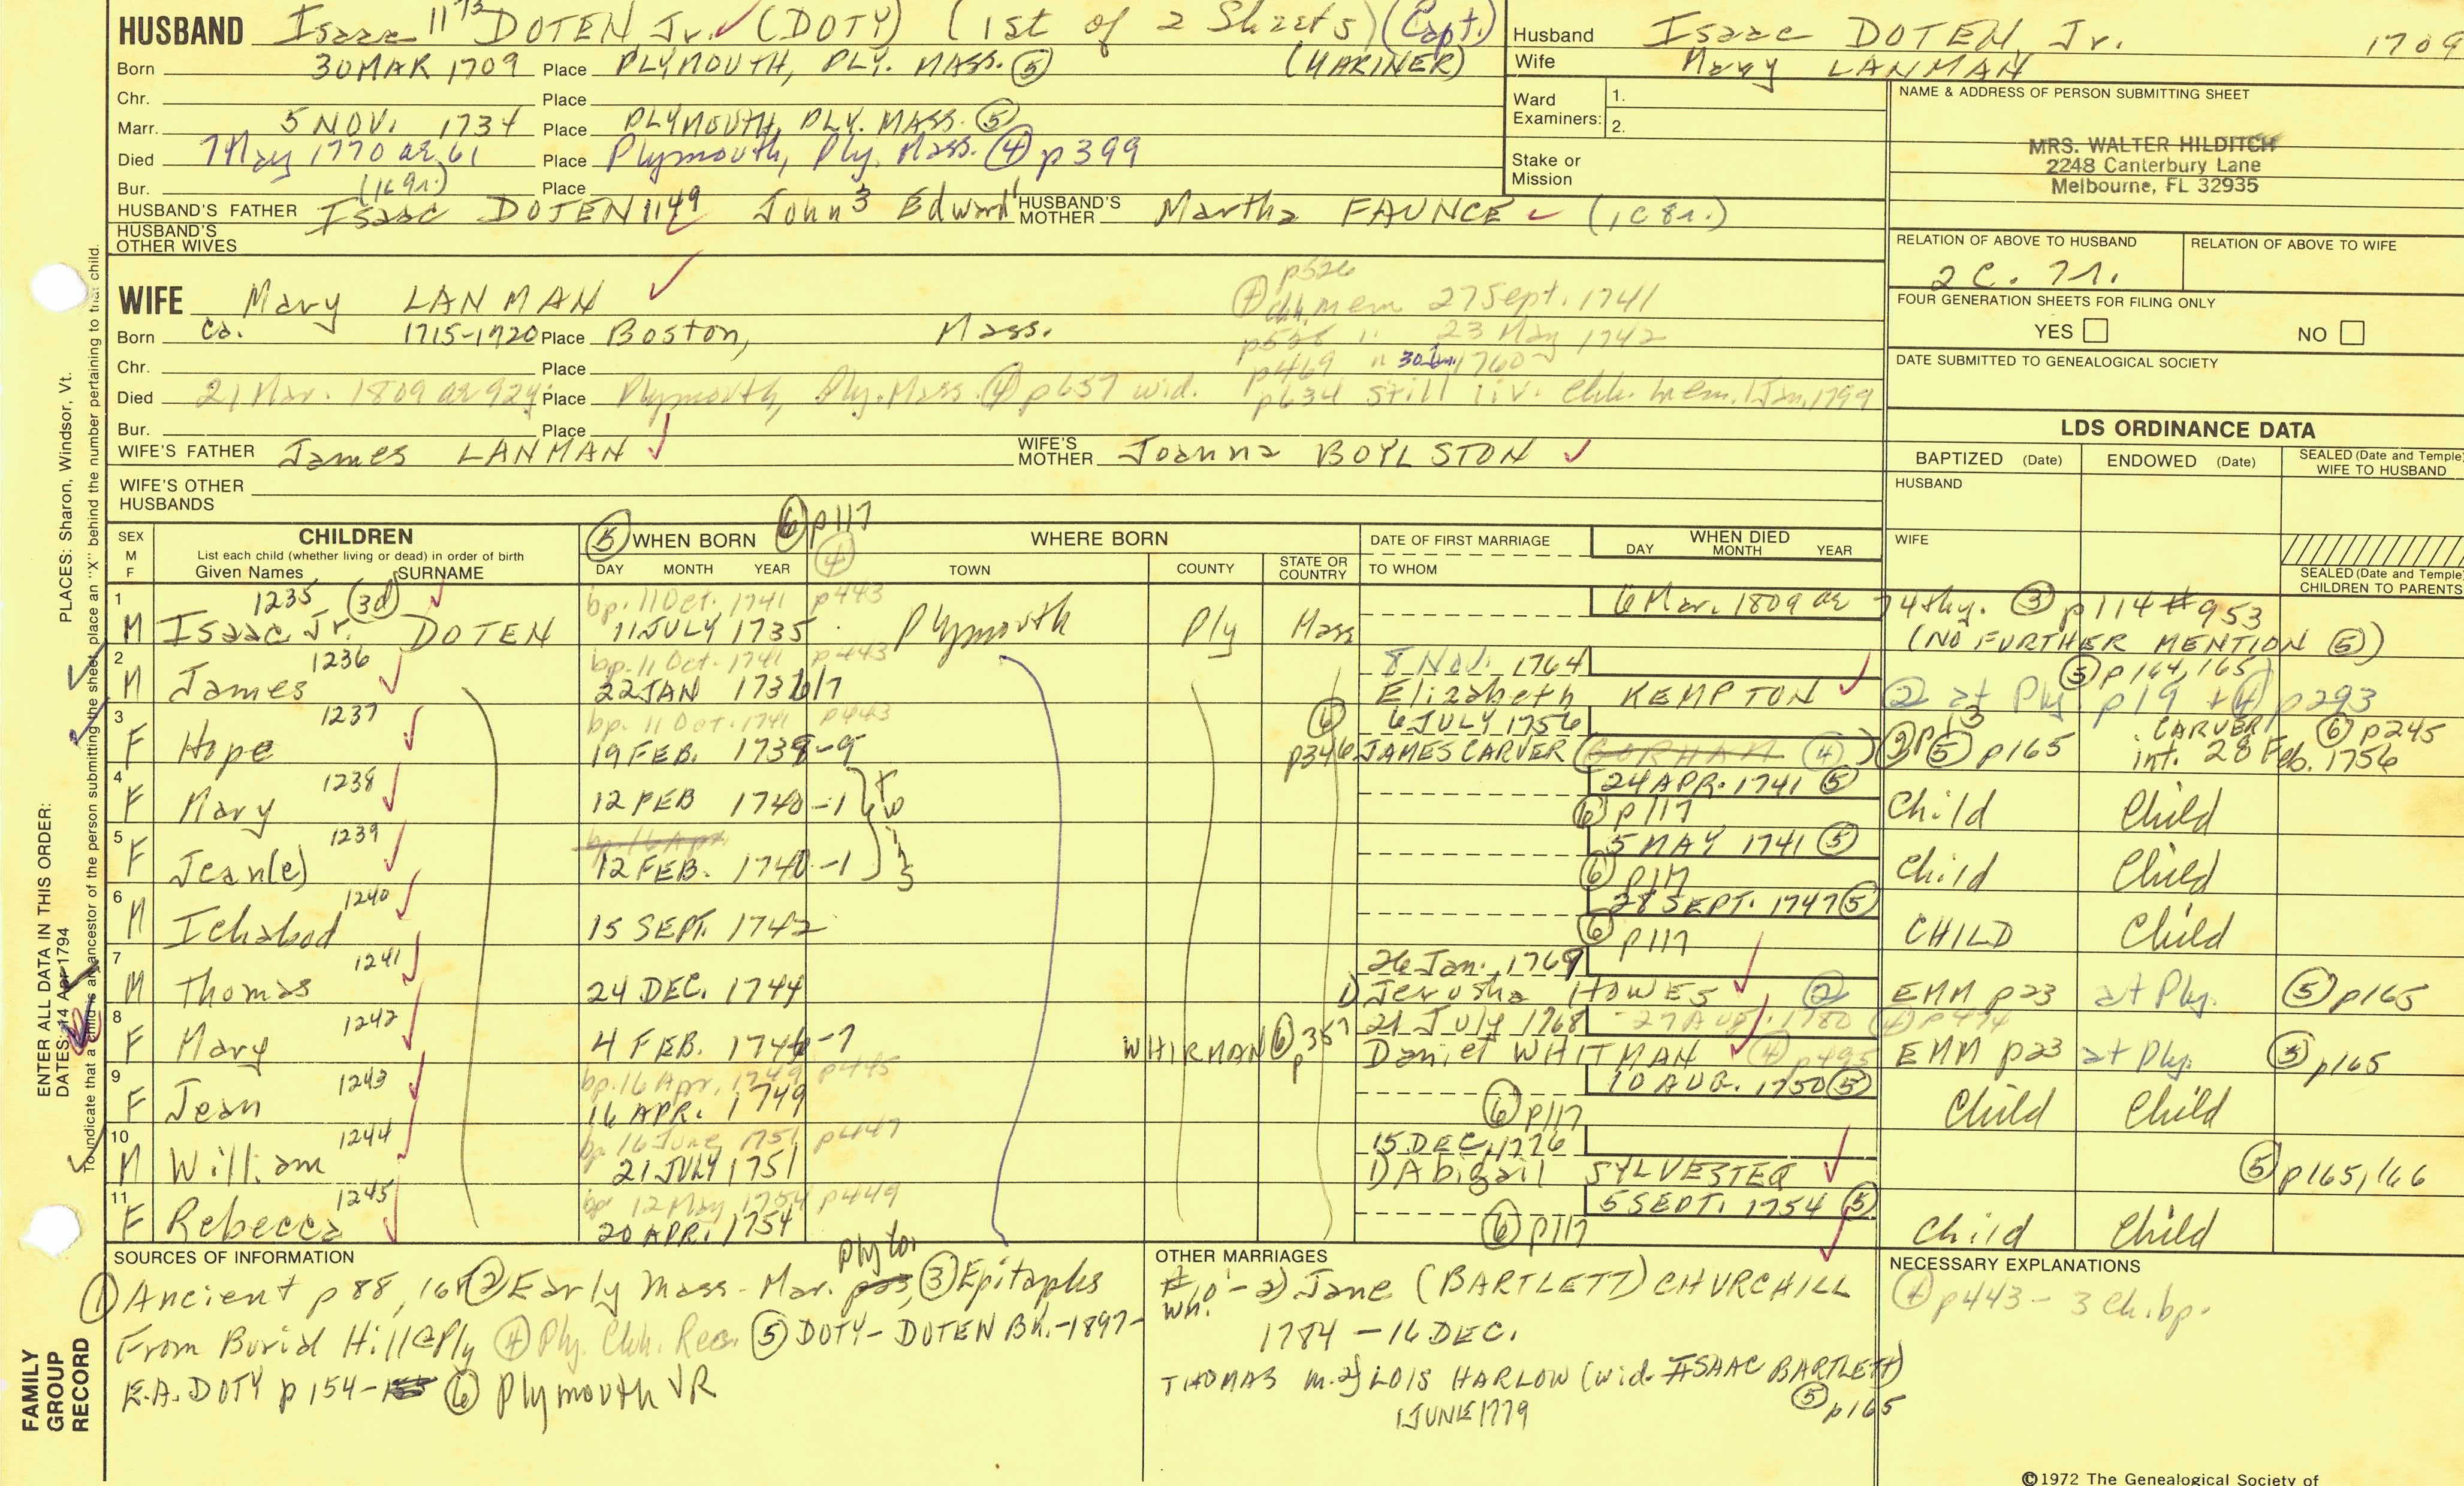 HUSBAND Isaac 1173 DOTEN Jr. (DOTY) (1st of 2 Sheets) (Capt.)
Born 30 MAR 1709 Place PLYMOUTH, PLY. MASS. (5) (MARINER)
Chr. Place
Marr. 5 NOV. 1734 Place PLYMOUTH, PLY. MASS. (5)
Died 7 May 1770 ae 61 Place Plymouth, Ply. Mass. (4) p399
Bur. Place
HUSBAND'S FATHER Isaac DOTEN 1149 John3 Edward1 HUSBAND'S MOTHER Martha FAUNCE (1C8r.)
(1C9r.)
HUSBAND'S OTHER WIVES
Husband Isaac DOTEN, Jr. 1709
Wife Mary LANMAN
Ward Examiners: 1.
2.
Stake or Mission
NAME & ADDRESS OF PERSON SUBMITTING SHEET
MRS. WALTER HILDITCH
2248 Canterbury Lane
Melbourne, FL 32935
RELATION OF ABOVE TO HUSBAND RELATION OF ABOVE TO WIFE
2C. 7r.
FOUR GENERATION SHEETS FOR FILING ONLY
YES NO
DATE SUBMITTED TO GENEALOGICAL SOCIETY
WIFE Mary LANMAN
p526
(4) chh. mem 27 Sept. 1741
Born ca. 1715-1720 Place Boston, Mass.
p528 " 23 May 1742
Chr. Place
p469 " 30 Jan. 1760
Died 21 Mar. 1809 ae 92y. Place Plymouth, Ply. Mass. (4) p637 wid. p634 still liv. chh. mem. 1 Jan. 1799
Bur. Place
WIFE'S FATHER James LANMAN WIFE'S MOTHER Joanna BOYLSTON
WIFE'S OTHER HUSBANDS
LDS ORDINANCE DATA
BAPTIZED (Date) ENDOWED (Date) SEALED (Date and Temple) WIFE TO HUSBAND
HUSBAND
WIFE
SEALED (Date and Temple) CHILDREN TO PARENTS
SEX M F CHILDREN
List each child (whether living or dead) in order of birth
Given Names SURNAME
(5) WHEN BORN (6) p117
(4)
DAY MONTH YEAR
WHERE BORN
TOWN COUNTY STATE OR COUNTRY
DATE OF FIRST MARRIAGE
TO WHOM
WHEN DIED
DAY MONTH YEAR
1235 (3d) bp. 11 Oct. 1741 p443 6 Mar. 1809 ae 74thy. (3) p114 #953
1 M Isaac Jr. DOTEN 11 JULY 1735 Plymouth Ply Mass (NO FURTHER MENTION (5))
1236 bp. 11 Oct. 1741 p443 8 Nov. 1764 (5) p164, 165
2 M James 22 JAN 1736/7 Elizabeth KEMPTON (2) at Ply. p19 + (4) p293
1237 bp. 11 Oct. 1741 p443 (6) 6 JULY 1756 CARVER (6) p245
3 F Hope 19 FEB. 1738-9 p346 JAMES CARVER (GORHAM (4)) (2) p13 (5) p165 int. 28 Feb. 1756
1238 24 APR. 1741 (5)
4 F Mary 12 FEB 1740-1 (6) p117 Child Child
twins
1239 bp. 16 Apr. 5 MAY 1741 (5)
5 F Jean(e) 12 FEB. 1740-1 (6) p117 Child Child
1240 28 SEPT. 1747 (5)
6 M Ichabod 15 SEPT. 1742 (6) p117 CHILD Child
1241 26 Jan. 1769
7 M Thomas 24 DEC. 1744 1) Jerusha HOWES (2) EMM p23 at Ply. (5) p165
1242 21 July 1768 27 Aug. 1780 (4) p414
8 F Mary 4 FEB. 1746-7 WHIRMAN (6) p357 Daniel WHITMAN (4) p495 EMM p23 at Ply. (5) p165
1243 bp. 16 Apr. 1749 p445 10 AUG. 1750 (5)
9 F Jean 16 APR. 1749 (6) p117 Child Child
1244 bp 16 June 1751 p447 15 DEC. 1776
10 M William 21 JULY 1751 1) Abigail SYLVESTER (5) p165, 166
1245 bp 12 May 1754 p449 5 SEPT. 1754 (5)
11 F Rebecca 20 APR. 1754 (6) p117 Child Child
SOURCES OF INFORMATION
(1) Ancient p 88, 168 (2) Early Mass. Mar. p23, Ply co. (3) Epitaphs
From Burial Hill @ Ply (4) Ply. Chh. Rec. (5) DOTY-DOTEN BK.-1897-
E.A. DOTY p 154-155 (6) Plymouth VR
OTHER MARRIAGES
#10 Wm. - 2) Jane (BARTLETT) CHURCHILL
1784 - 16 DEC.
THOMAS m. 2) LOIS HARLOW (wid. ISAAC BARTLETT)
1 JUNE 1779 (5) p165
NECESSARY EXPLANATIONS
(4) p443 - 3 ch. bp.
©1972 The Genealogical Society of
ENTER ALL DATA IN THIS ORDER:
DATES: 14 Apr 1794
PLACES: Sharon, Windsor, Vt.
To indicate that a child is an ancestor of the person submitting the sheet, place an "X" behind the number pertaining to that child.
FAMILY GROUP RECORD